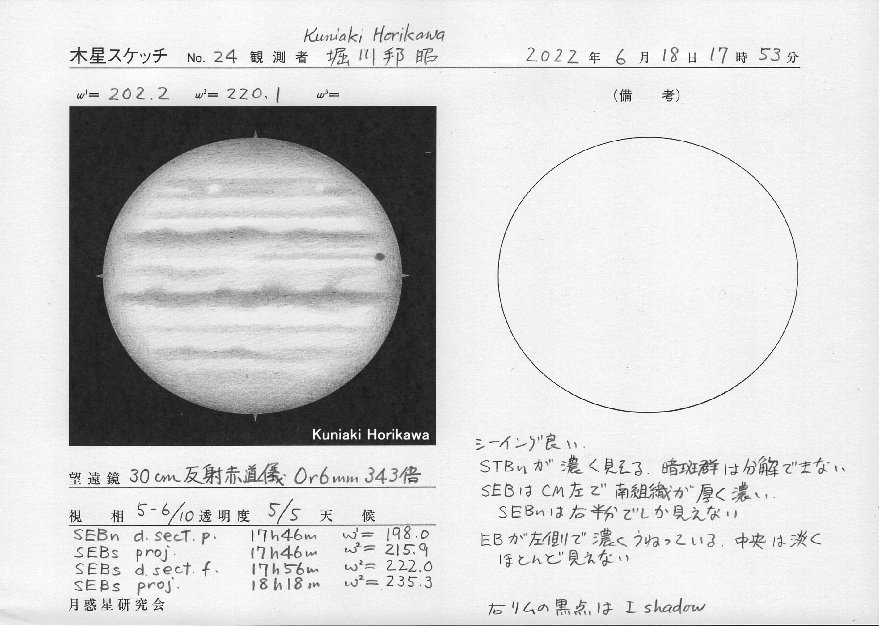 Kuniaki Horikawa
木星スケッチ No. 24 観測者 堀川邦昭 2022年 6月 18日 17時 53分
ω¹= 202.2 ω²= 220.1 ω³=
(備 考)
Kuniaki Horikawa
望遠鏡 30cm反射赤道儀 Or6mm 343倍
視 相 5-6/10 透明度 5/5 天 候
SEBn d. sect. p. 17h46m ω¹= 198.0
SEBs proj. 17h46m ω²= 215.9
SEBs d. sect. f. 17h56m ω²= 222.0
SEBs proj. 18h18m ω²= 235.3
月惑星研究会
シーイング良い.
STBnが濃く見える. 暗斑群は分解できない
SEBはCM左で南組織が厚く濃い.
SEBnは右半分でしか見えない
EBが左側で濃くうねっている. 中央は淡く
ほとんど見えない
右リムの黒点は I shadow